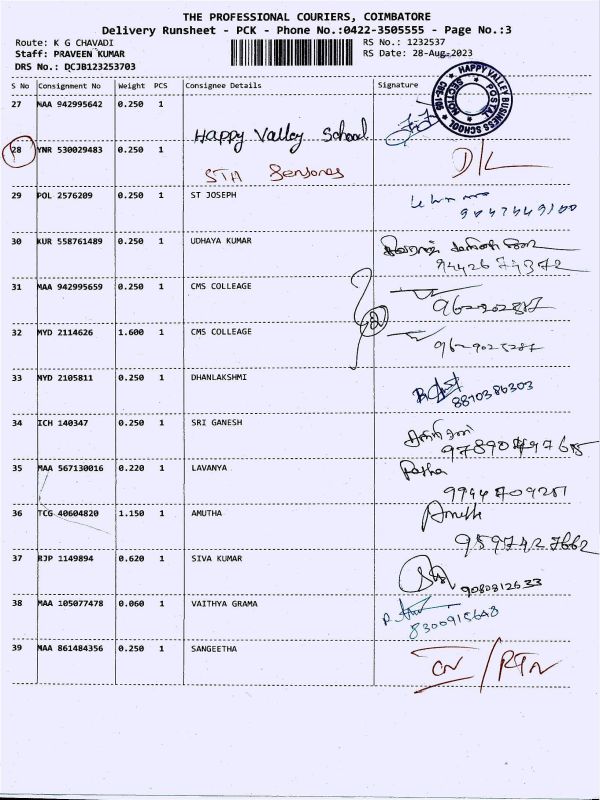 THE PROFESSIONAL COURIERS, COIMBATORE
Delivery Runsheet - PCK - Phone No.:0422-3505555 - Page No.:3
Route: K G CHAVADI RS No.: 1232537
Staff: PRAVEEN KUMAR RS Date: 28-Aug-2023
DRS No.: DCJB123253703
S No Consignment No Weight PCS Consignee Details Signature
HAPPY VALLEY BUSINESS SCHOOL
POSTAL SECTION
CBE-105
27 MAA 942995642 0.250 1 Happy Valley School
28 YNR 530029483 0.250 1 D/L
29 POL 2576209 0.250 1 ST JOSEPH
30 KUR 558761489 0.250 1 UDHAYA KUMAR
9442674372
31 MAA 942995659 0.250 1 CMS COLLEAGE
32 MYD 2114626 1.600 1 CMS COLLEAGE
2
33 MYD 2105811 0.250 1 DHANLAKSHMI
8870386303
34 ICH 140347 0.250 1 SRI GANESH
35 MAA 567130016 0.220 1 LAVANYA
9944709251
36 TCG 40604820 1.150 1 AMUTHA
9597427662
37 RJP 1149894 0.620 1 SIVA KUMAR
9080812633
38 MAA 105077478 0.060 1 VAITHYA GRAMA
8300915648
39 MAA 861484356 0.250 1 SANGEETHA
CN / RTN